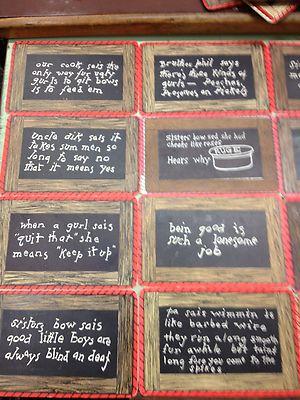 our cook sais the
only way fur ugly
gurls to git bows
is to feed em
Brother phil says
there's three kinds of
gurls — Peaches
Uncla dik sais it
takes sum men so
long to say no
that it means yes
Sisters bow sed she had
cheeks like roses
Hears why
ROUGE
when a gurl sais
"quit that" she
means "keep it up"
bein good is
such a lonesome
job
Sisters bow sais
good little boys are
always blind an deaf
pa sais wimmin is
like barbed wire
they run along smooth
fur awhile but taint
long fore you come to the
spikes